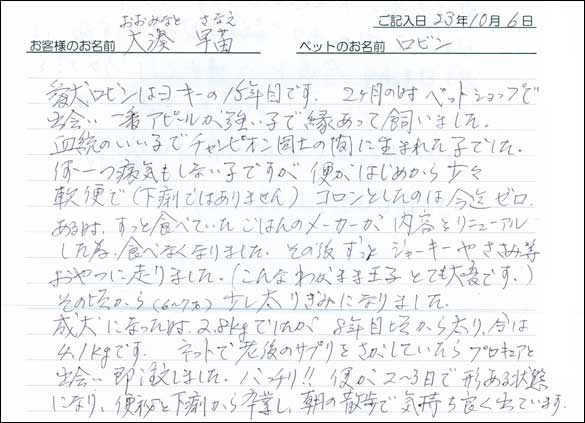 ご記入日 23年10月6日
おおみなと さなえ
お客様のお名前 大湊 早苗 ペットのお名前 ロビン
愛犬ロビンはヨーキーの15年目です. 2ヶ月の時ペットショップで
出会い一番アピールが強い子で縁あって飼いました.
血統のいい子でチャンピオン同士の間に生まれた子でした.
何一つ病気もしない子ですが 便がはじめから少々
軟便で(下痢ではありません) コロンとしたのは今迄ゼロ.
ある時、ずっと食べていたごはんのメーカーが、内容をリニューアル
した為、食べなくなりました. その後ずっと ジャーキーやささみ等
おやつに走りました.(こんなわがまま王子とても大変です.)
その頃から(6~7才)少し太りぎみになりました.
成犬になった時、2.8kgでしたが 8年目頃から太り、今は
4.1kgです. ネットで老後のサプリをさがしていたらプロキュアと
出会い即注文しました. バッチリ!! 便が2~3日で形ある状態
になり、便秘と下痢から卒業し、朝の散歩で気持ち良く出ています.